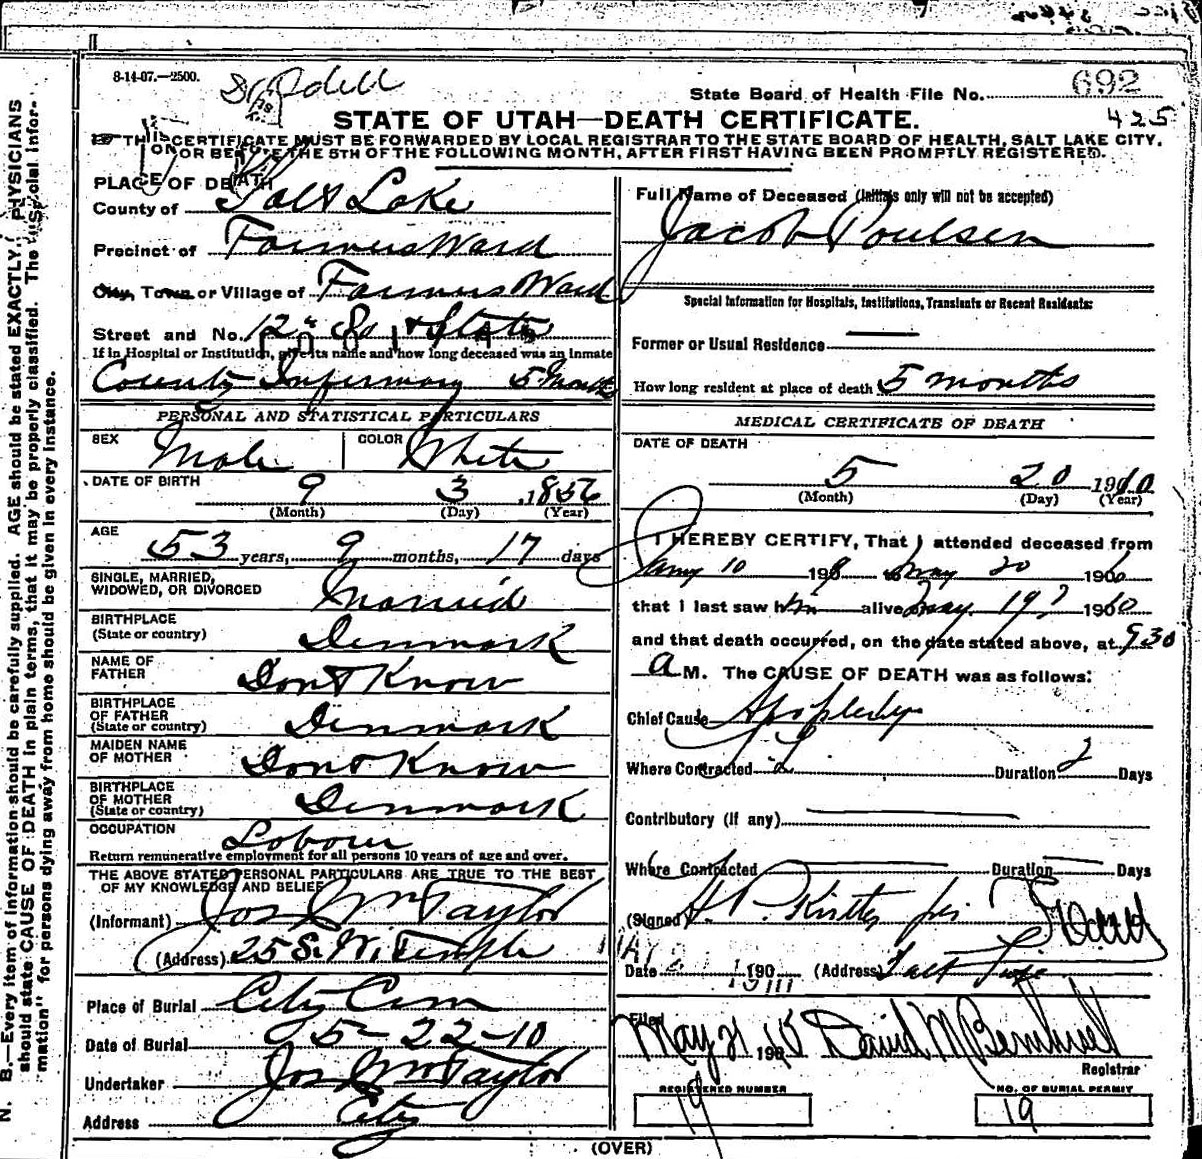 8-14-07.—2500.
State Board of Health File No. 692
425
STATE OF UTAH—DEATH CERTIFICATE.
THIS CERTIFICATE MUST BE FORWARDED BY LOCAL REGISTRAR TO THE STATE BOARD OF HEALTH, SALT LAKE CITY,
ON OR BEFORE THE 5TH OF THE FOLLOWING MONTH, AFTER FIRST HAVING BEEN PROMPTLY REGISTERED.
PLACE OF DEATH
County of Salt Lake
Precinct of Farmers Ward
City, Town or Village of Farmers Ward
Street and No. 12 So & State
If in Hospital or Institution, give its name and how long deceased was an inmate
County Infirmary 5 Months
PERSONAL AND STATISTICAL PARTICULARS
SEX Male COLOR White
DATE OF BIRTH 9 3 1856
(Month) (Day) (Year)
AGE 53 years, 9 months, 17 days
SINGLE, MARRIED,
WIDOWED, OR DIVORCED Married
BIRTHPLACE
(State or country) Denmark
NAME OF
FATHER Dont Know
BIRTHPLACE
OF FATHER
(State or country) Denmark
MAIDEN NAME
OF MOTHER Dont Know
BIRTHPLACE
OF MOTHER
(State or country) Denmark
OCCUPATION Labour
Return remunerative employment for all persons 10 years of age and over.
THE ABOVE STATED PERSONAL PARTICULARS ARE TRUE TO THE BEST
OF MY KNOWLEDGE AND BELIEF
(Informant) Jos Wm Taylor
(Address) 25 S. W. Temple
Place of Burial City Cem
Date of Burial 5-22-10
Undertaker Jos Wm Taylor
Address City
Full Name of Deceased (Initials only will not be accepted)
Jacob Poulsen
Special Information for Hospitals, Institutions, Transients or Recent Residents:
Former or Usual Residence
How long resident at place of death 5 months
MEDICAL CERTIFICATE OF DEATH
DATE OF DEATH
5 20 1910
(Month) (Day) (Year)
I HEREBY CERTIFY, That I attended deceased from
10 190 to May 20 1910
that I last saw him alive May 19 1910
and that death occurred, on the date stated above, at 9.30
a M. The CAUSE OF DEATH was as follows:
Chief Cause Apoplexy
Where Contracted Duration 2 Days
Contributory (if any)
Where Contracted Duration Days
(Signed)
Date 190 (Address) Salt Lake
Filed May 21 1910 David M
Registrar
REGISTERED NUMBER 19
NO. OF BURIAL PERMIT 19
(OVER)
N. B.—Every item of information should be carefully supplied. AGE should be stated EXACTLY. PHYSICIANS
should state CAUSE OF DEATH in plain terms, that it may be properly classified. The "Special Infor-
mation" for persons dying away from home should be given in every instance.